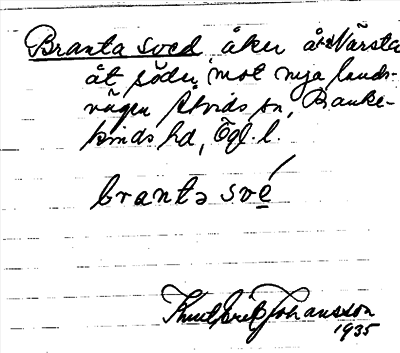 Branta sved, åker å Närsta
åt söder, mot nya lands-
vägen Åtvids sn, Banke-
kinds hd, Ögl. l.
branta své
Knut Erik Johansson
1935